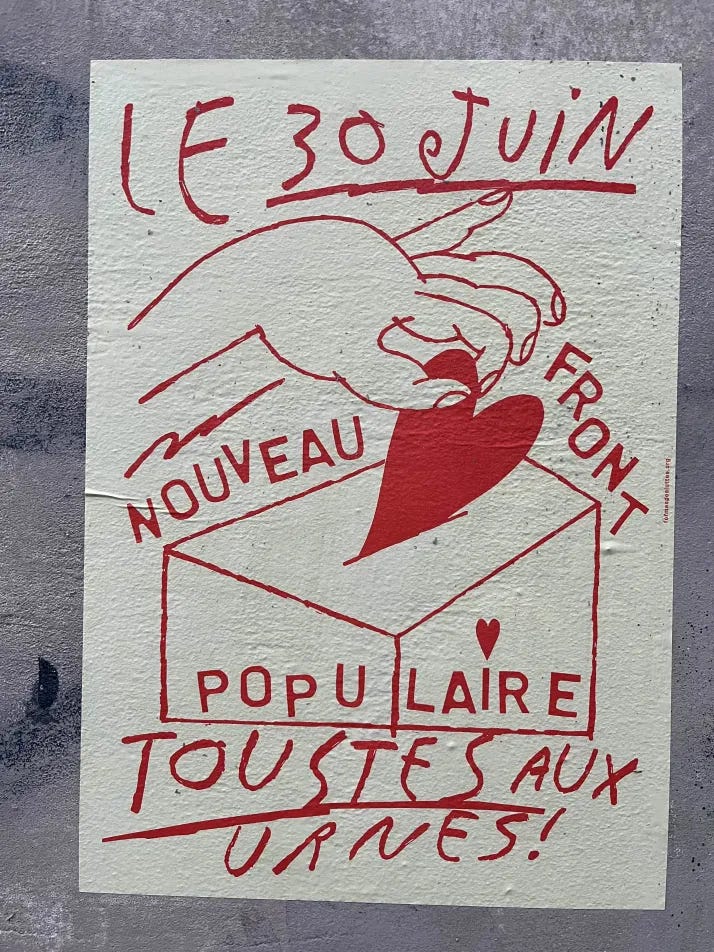 LE 30 JUIN
NOUVEAU
FRONT
POPULAIRE
TOUSTES AUX
URNES!